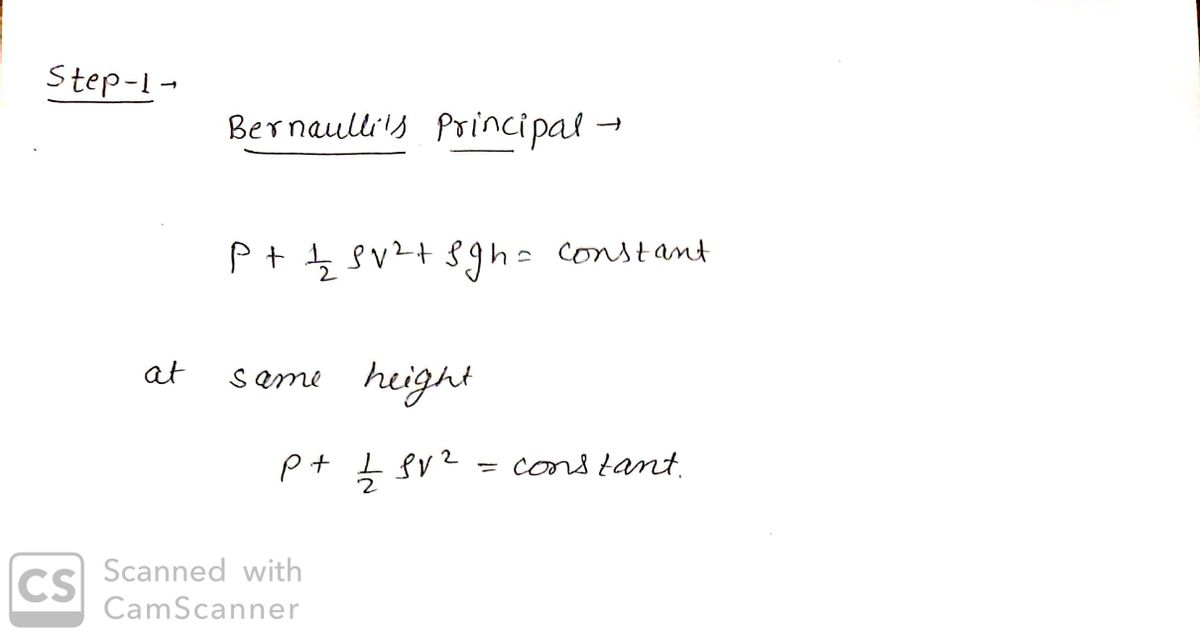 Step-1→
Bernaulli's Principal →
P + 1/2 ρv² + ρgh = constant
at same height
P + 1/2 ρv² = constant.
CS Scanned with
CamScanner